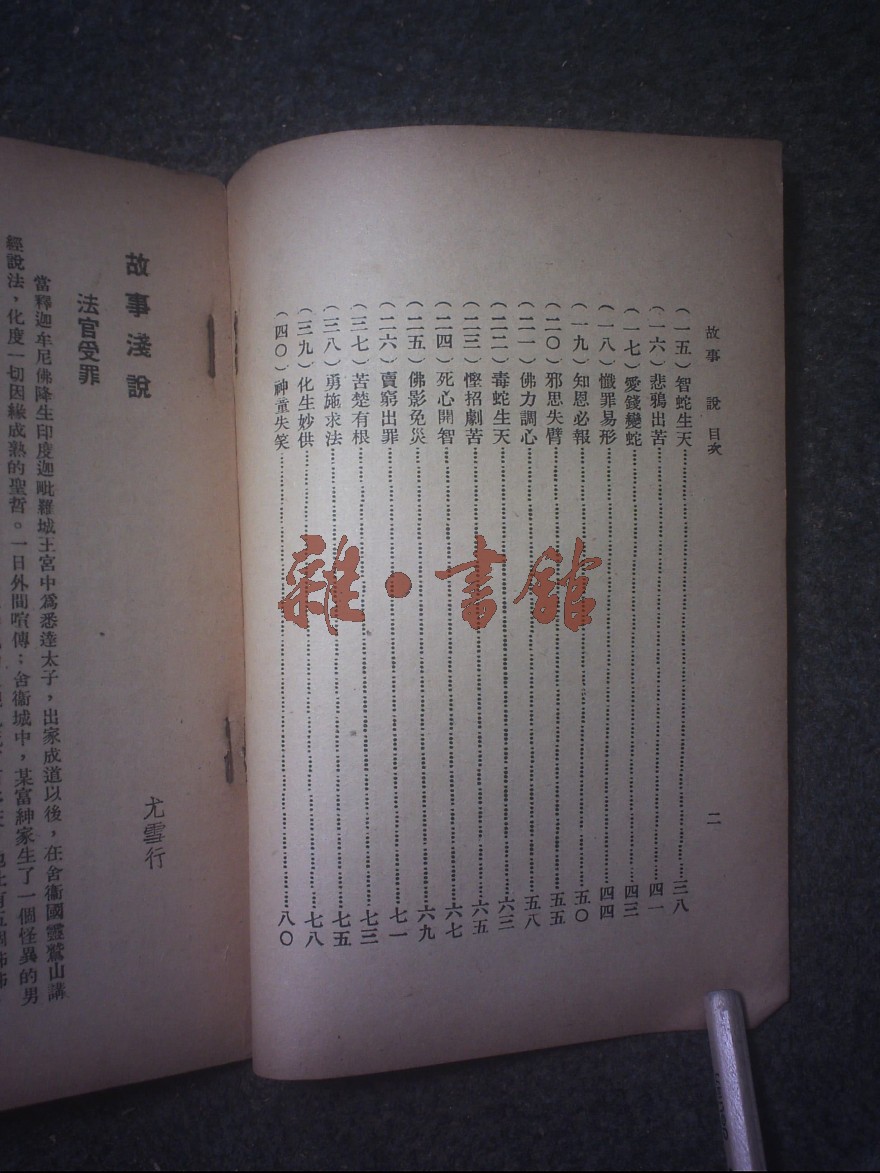 故事 說 目次
二
(一五)智蛇生天……三八
(一六)悲鴉出苦……四一
(一七)愛錢變蛇……四三
(一八)懺罪易形……四四
(一九)知恩必報……五〇
(二〇)邪思失臂……五五
(二一)佛力調心……五八
(二二)毒蛇生天……六三
(二三)慳招劇苦……六五
(二四)死心開智……六七
(二五)佛影免災……六九
(二六)賣窮出罪……七一
(三七)苦楚有根……七三
(三八)勇施求法……七五
(三九)化生妙供……七八
(四〇)神童失笑……八〇
雜·書館
故事淺說
尤雪行
法官受罪
當釋迦牟尼佛降生印度迦毗羅城王宮中爲悉達太子,出家成道以後,在舍衞國靈鷲山講
經說法,化度一切因緣成熟的聖哲。一日外間喧傳;舍衞城中,某富紳家生了一個怪異的男